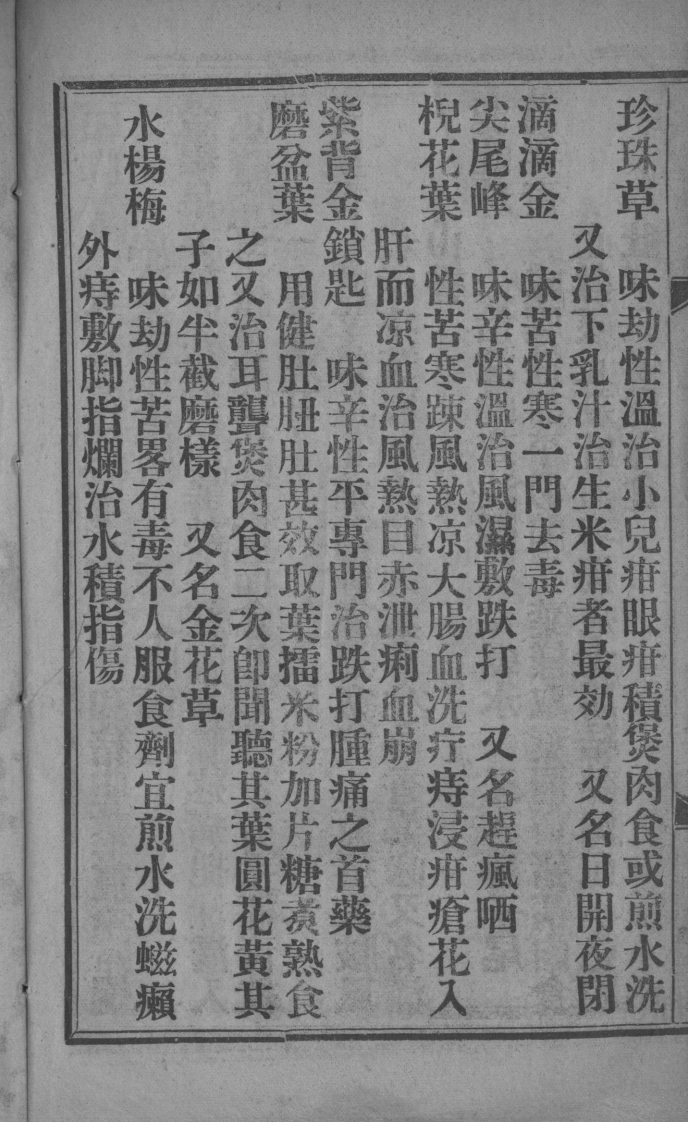 珍珠草　味劫性溫治小兒疳眼疳積煲肉食或煎水洗
又治下乳汁治生米疳者最効　又名日開夜閉
滴滴金　味苦性寒一門去毒
尖尾峰　味辛性溫治風濕敷跌打　又名趕瘋晒
棿花葉　性苦寒踈風熱凉大腸血洗疔痔浸疳瘡花入
肝而凉血治風熱目赤泄痢血崩
紫背金鎖匙　味辛性平專門治跌打腫痛之首藥
磨盆葉　用健肚胆肚甚效取葉擂米粉加片糖煑熟食
之又治耳聾煲肉食二次卽聞聽其葉圓花黃其
子如半截磨樣　又名金花草
水楊梅　味劫性苦畧有毒不人服食劑宜煎水洗螆癩
外痔敷脚指爛治水積指傷